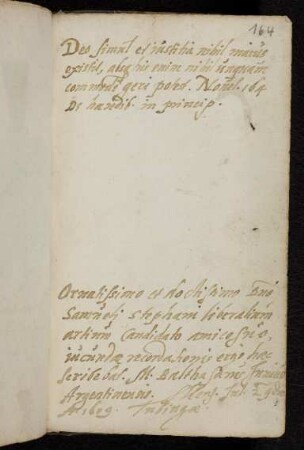 164
Deo simul et iustitia nihil maius
existit, absq his enim nihil unquam
commode geri potest. Novel. 164
De haeredib. in princip.
Ornatissimo et doctissimo Dno
Samueli Stephani liberalium
artium Candidato amico suo,
iucundae recordationis ergo haec
scribebat. M. Balthasarus
Argentinensis. Mens. Jul.
Ao 1609. Tubingae